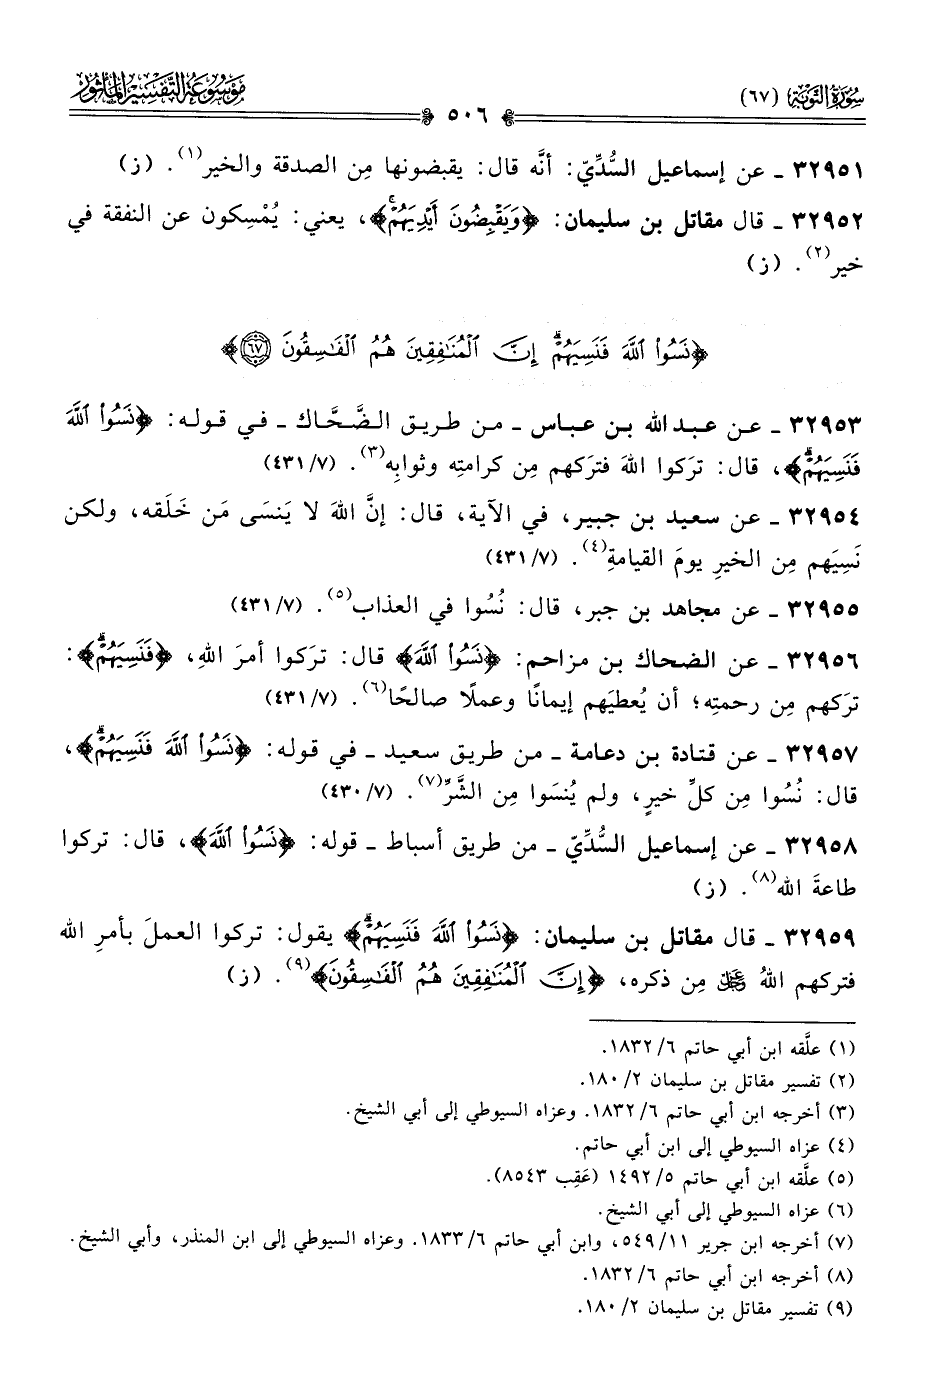 سُورَةُ التَّوْبَة (٦٧)
٥٠٦
مَوْسُوعَةُ التَّفْسِيرِ المَأْثُور
٣٢٩٥١ ـ عن إسماعيل السُّدِّيّ: أنَّه قال: يقبضونها مِن الصدقة والخير(١). (ز)
٣٢٩٥٢ ـ قال مقاتل بن سليمان: ﴿وَيَقْبِضُونَ أَيْدِيَهُمْۚ﴾، يعني: يُمْسِكون عن النفقة في
خير(٢). (ز)
﴿نَسُوا۟ ٱللَّهَ فَنَسِيَهُمْۗ إِنَّ ٱلْمُنَٰفِقِينَ هُمُ ٱلْفَٰسِقُونَ ٦٧﴾
٣٢٩٥٣ ـ عن عبد الله بن عباس ـ من طريق الضَّحَّاك ـ في قوله: ﴿نَسُوا۟ ٱللَّهَ
فَنَسِيَهُمْۗ﴾، قال: ترَكوا اللهَ فترَكهم مِن كرامتِه وثوابِه(٣). (٧/ ٤٣١)
٣٢٩٥٤ ـ عن سعيد بن جبير، في الآية، قال: إنَّ اللهَ لا يَنسَى مَن خَلَقه، ولكن
نَسِيَهم مِن الخيرِ يومَ القيامةِ(٤). (٧/ ٤٣١)
٣٢٩٥٥ ـ عن مجاهد بن جبر، قال: نُسُوا في العذاب(٥). (٧/ ٤٣١)
٣٢٩٥٦ ـ عن الضحاك بن مزاحم: ﴿نَسُوا۟ ٱللَّهَ﴾ قال: ترَكوا أمرَ اللهِ، ﴿فَنَسِيَهُمْۗ﴾:
ترَكهم مِن رحمتِه؛ أن يُعطيَهم إيمانًا وعملًا صالحًا(٦). (٧/ ٤٣١)
٣٢٩٥٧ ـ عن قتادة بن دعامة ـ من طريق سعيد ـ في قوله: ﴿نَسُوا۟ ٱللَّهَ فَنَسِيَهُمْۗ﴾،
قال: نُسُوا مِن كلِّ خيرٍ، ولم يُنسَوا مِن الشَّرِّ(٧). (٧/ ٤٣٠)
٣٢٩٥٨ ـ عن إسماعيل السُّدِّيّ ـ من طريق أسباط ـ قوله: ﴿نَسُوا۟ ٱللَّهَ﴾، قال: تركوا
طاعةَ الله(٨). (ز)
٣٢٩٥٩ ـ قال مقاتل بن سليمان: ﴿نَسُوا۟ ٱللَّهَ فَنَسِيَهُمْۗ﴾ يقول: تركوا العملَ بأمرِ الله
فتركهم اللهُ ﷿ مِن ذكره، ﴿إِنَّ ٱلْمُنَٰفِقِينَ هُمُ ٱلْفَٰسِقُونَ﴾(٩). (ز)
(١) علَّقه ابن أبي حاتم ٦/ ١٨٣٢.
(٢) تفسير مقاتل بن سليمان ٢/ ١٨٠.
(٣) أخرجه ابن أبي حاتم ٦/ ١٨٣٢. وعزاه السيوطي إلى أبي الشيخ.
(٤) عزاه السيوطي إلى ابن أبي حاتم.
(٥) علَّقه ابن أبي حاتم ٥/ ١٤٩٢ (عَقِب ٨٥٤٣).
(٦) عزاه السيوطي إلى أبي الشيخ.
(٧) أخرجه ابن جرير ١١/ ٥٤٩، وابن أبي حاتم ٦/ ١٨٣٣. وعزاه السيوطي إلى ابن المنذر، وأبي الشيخ.
(٨) أخرجه ابن أبي حاتم ٦/ ١٨٣٢.
(٩) تفسير مقاتل بن سليمان ٢/ ١٨٠.